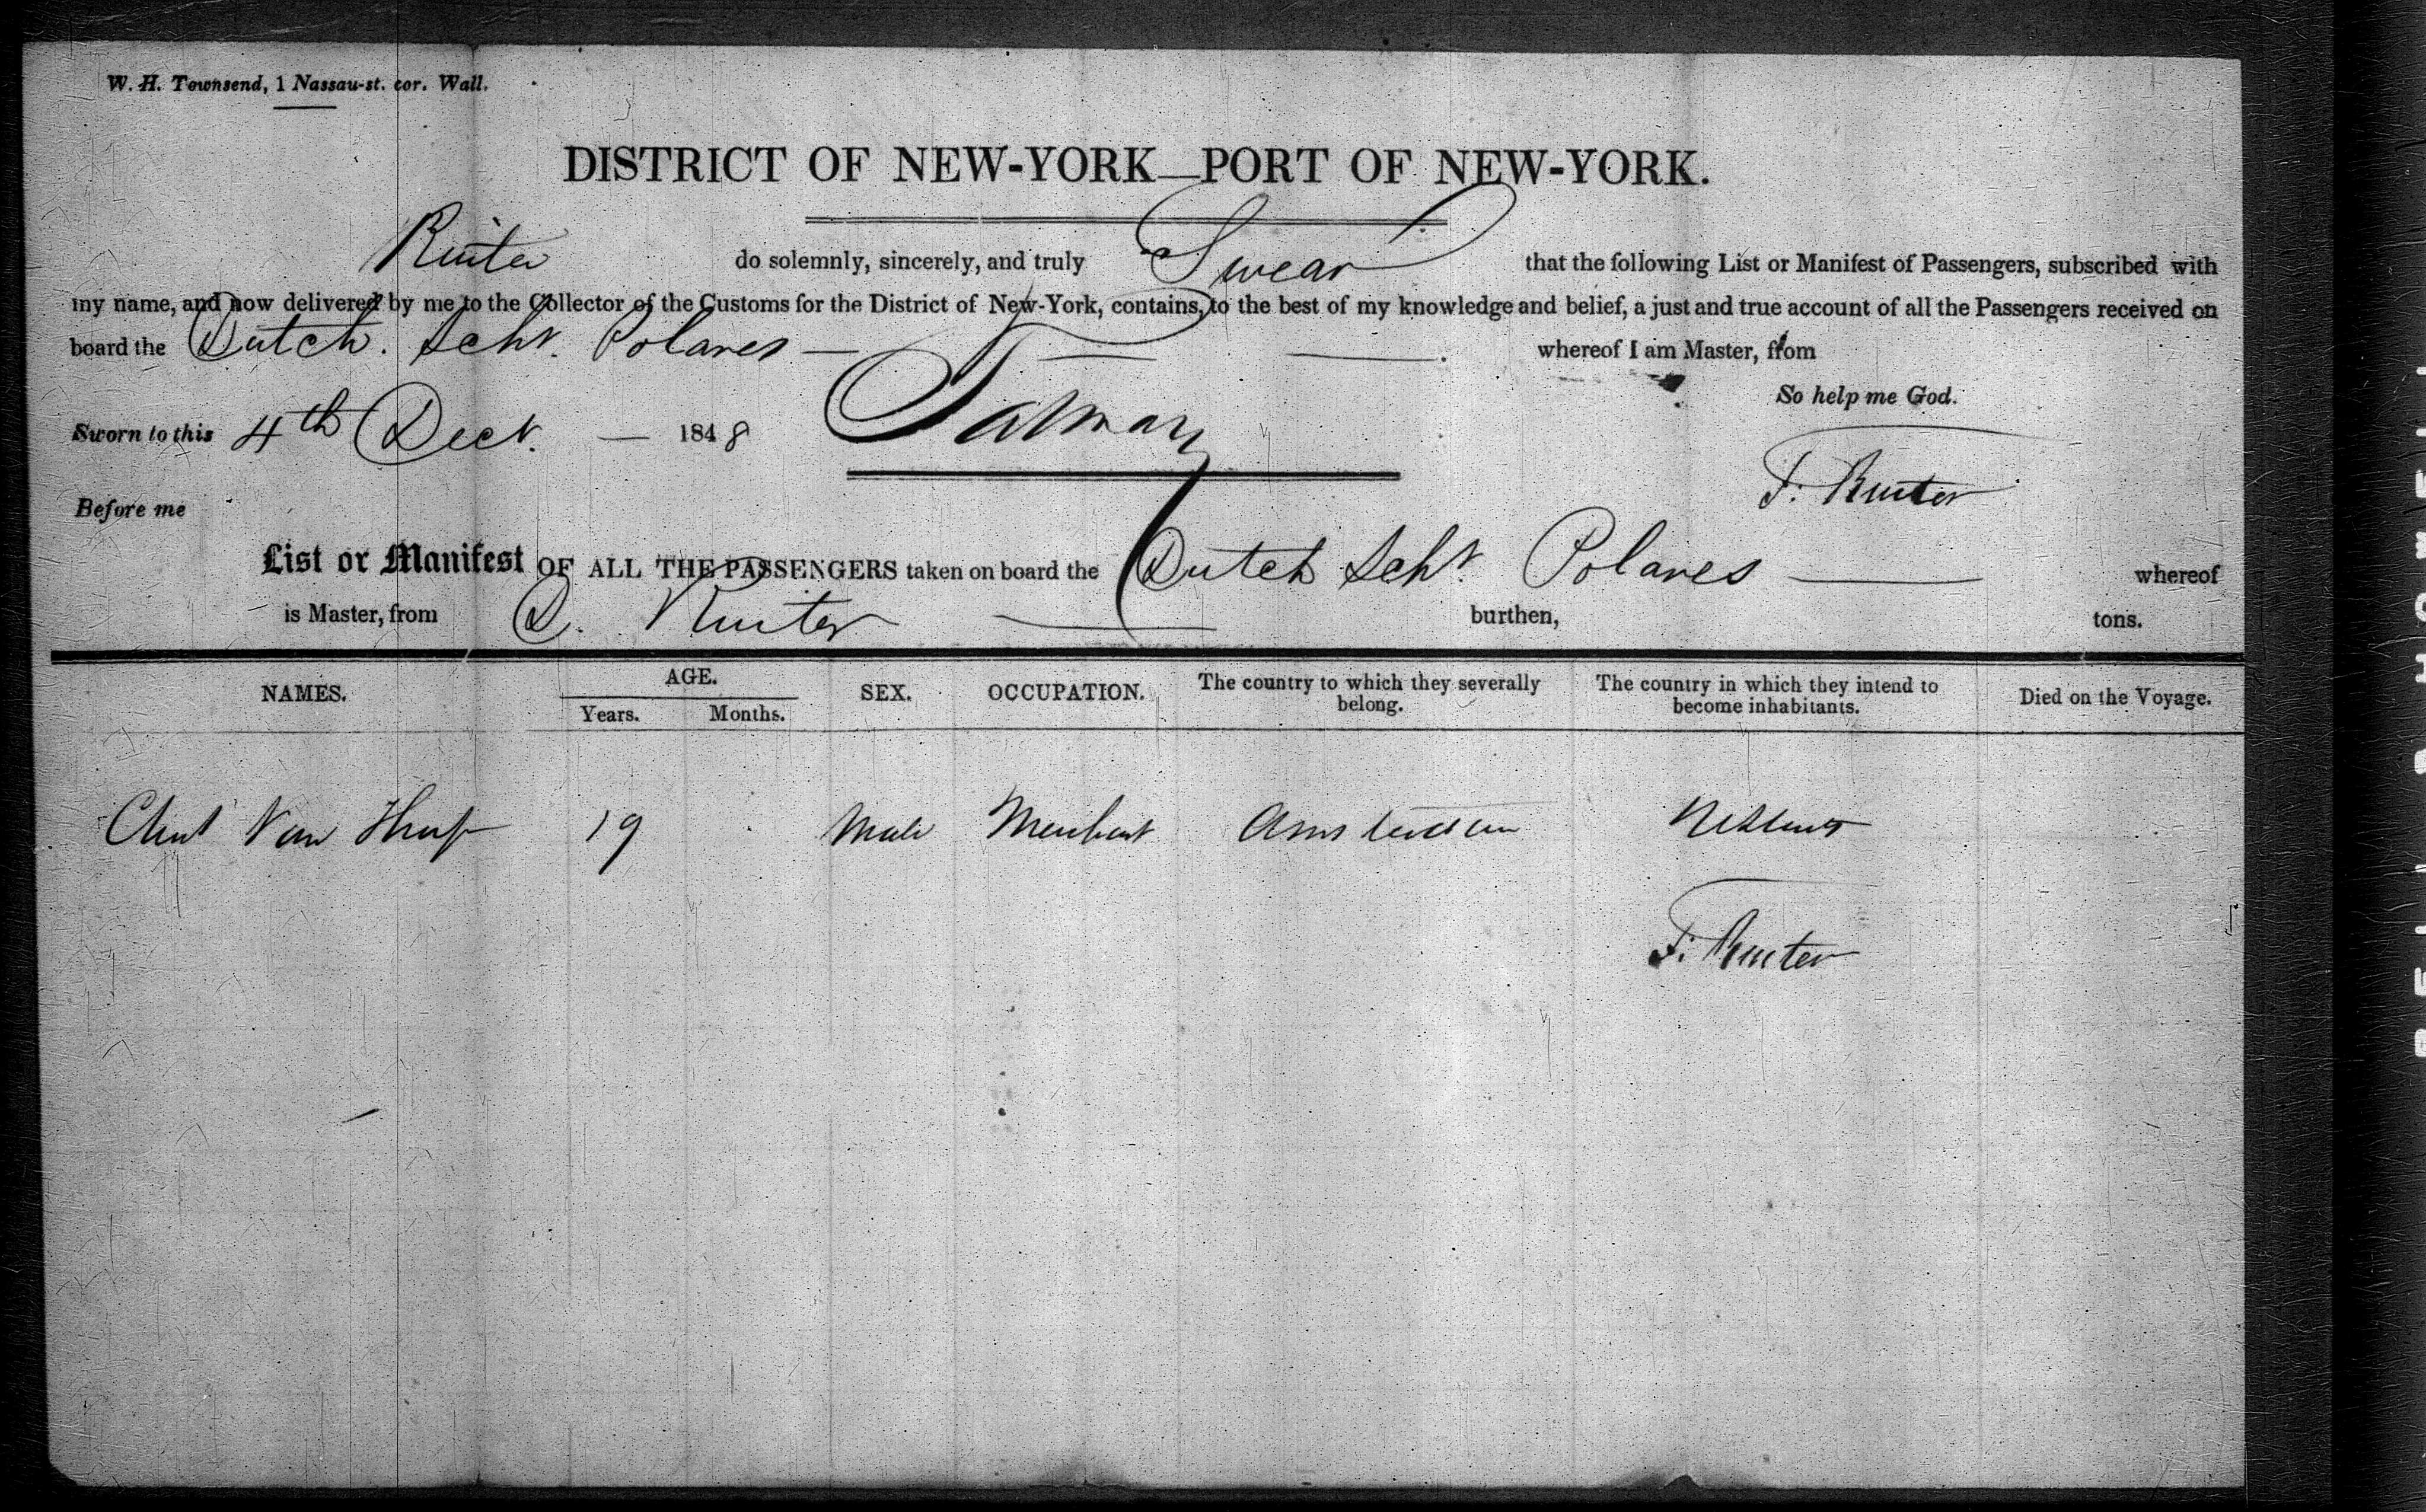 W. H. Townsend, 1 Nassau-st. cor. Wall.
DISTRICT OF NEW-YORK—PORT OF NEW-YORK.
Ruiter do solemnly, sincerely, and truly Swear that the following List or Manifest of Passengers, subscribed with
my name, and now delivered by me to the Collector of the Customs for the District of New-York, contains, to the best of my knowledge and belief, a just and true account of all the Passengers received on
board the Dutch. Schr. Polares — whereof I am Master, from
So help me God.
Sworn to this 4th Decr. — 1848
F. Ruiter
Before me
List or Manifest OF ALL THE PASSENGERS taken on board the Dutch Schr. Polares — whereof
is Master, from D. Ruiter — burthen, tons.
NAMES. AGE. SEX. OCCUPATION. The country to which they severally belong. The country in which they intend to become inhabitants. Died on the Voyage.
Years. Months.
Van 19 Male Merchant Amsterdam
F. Ruiter